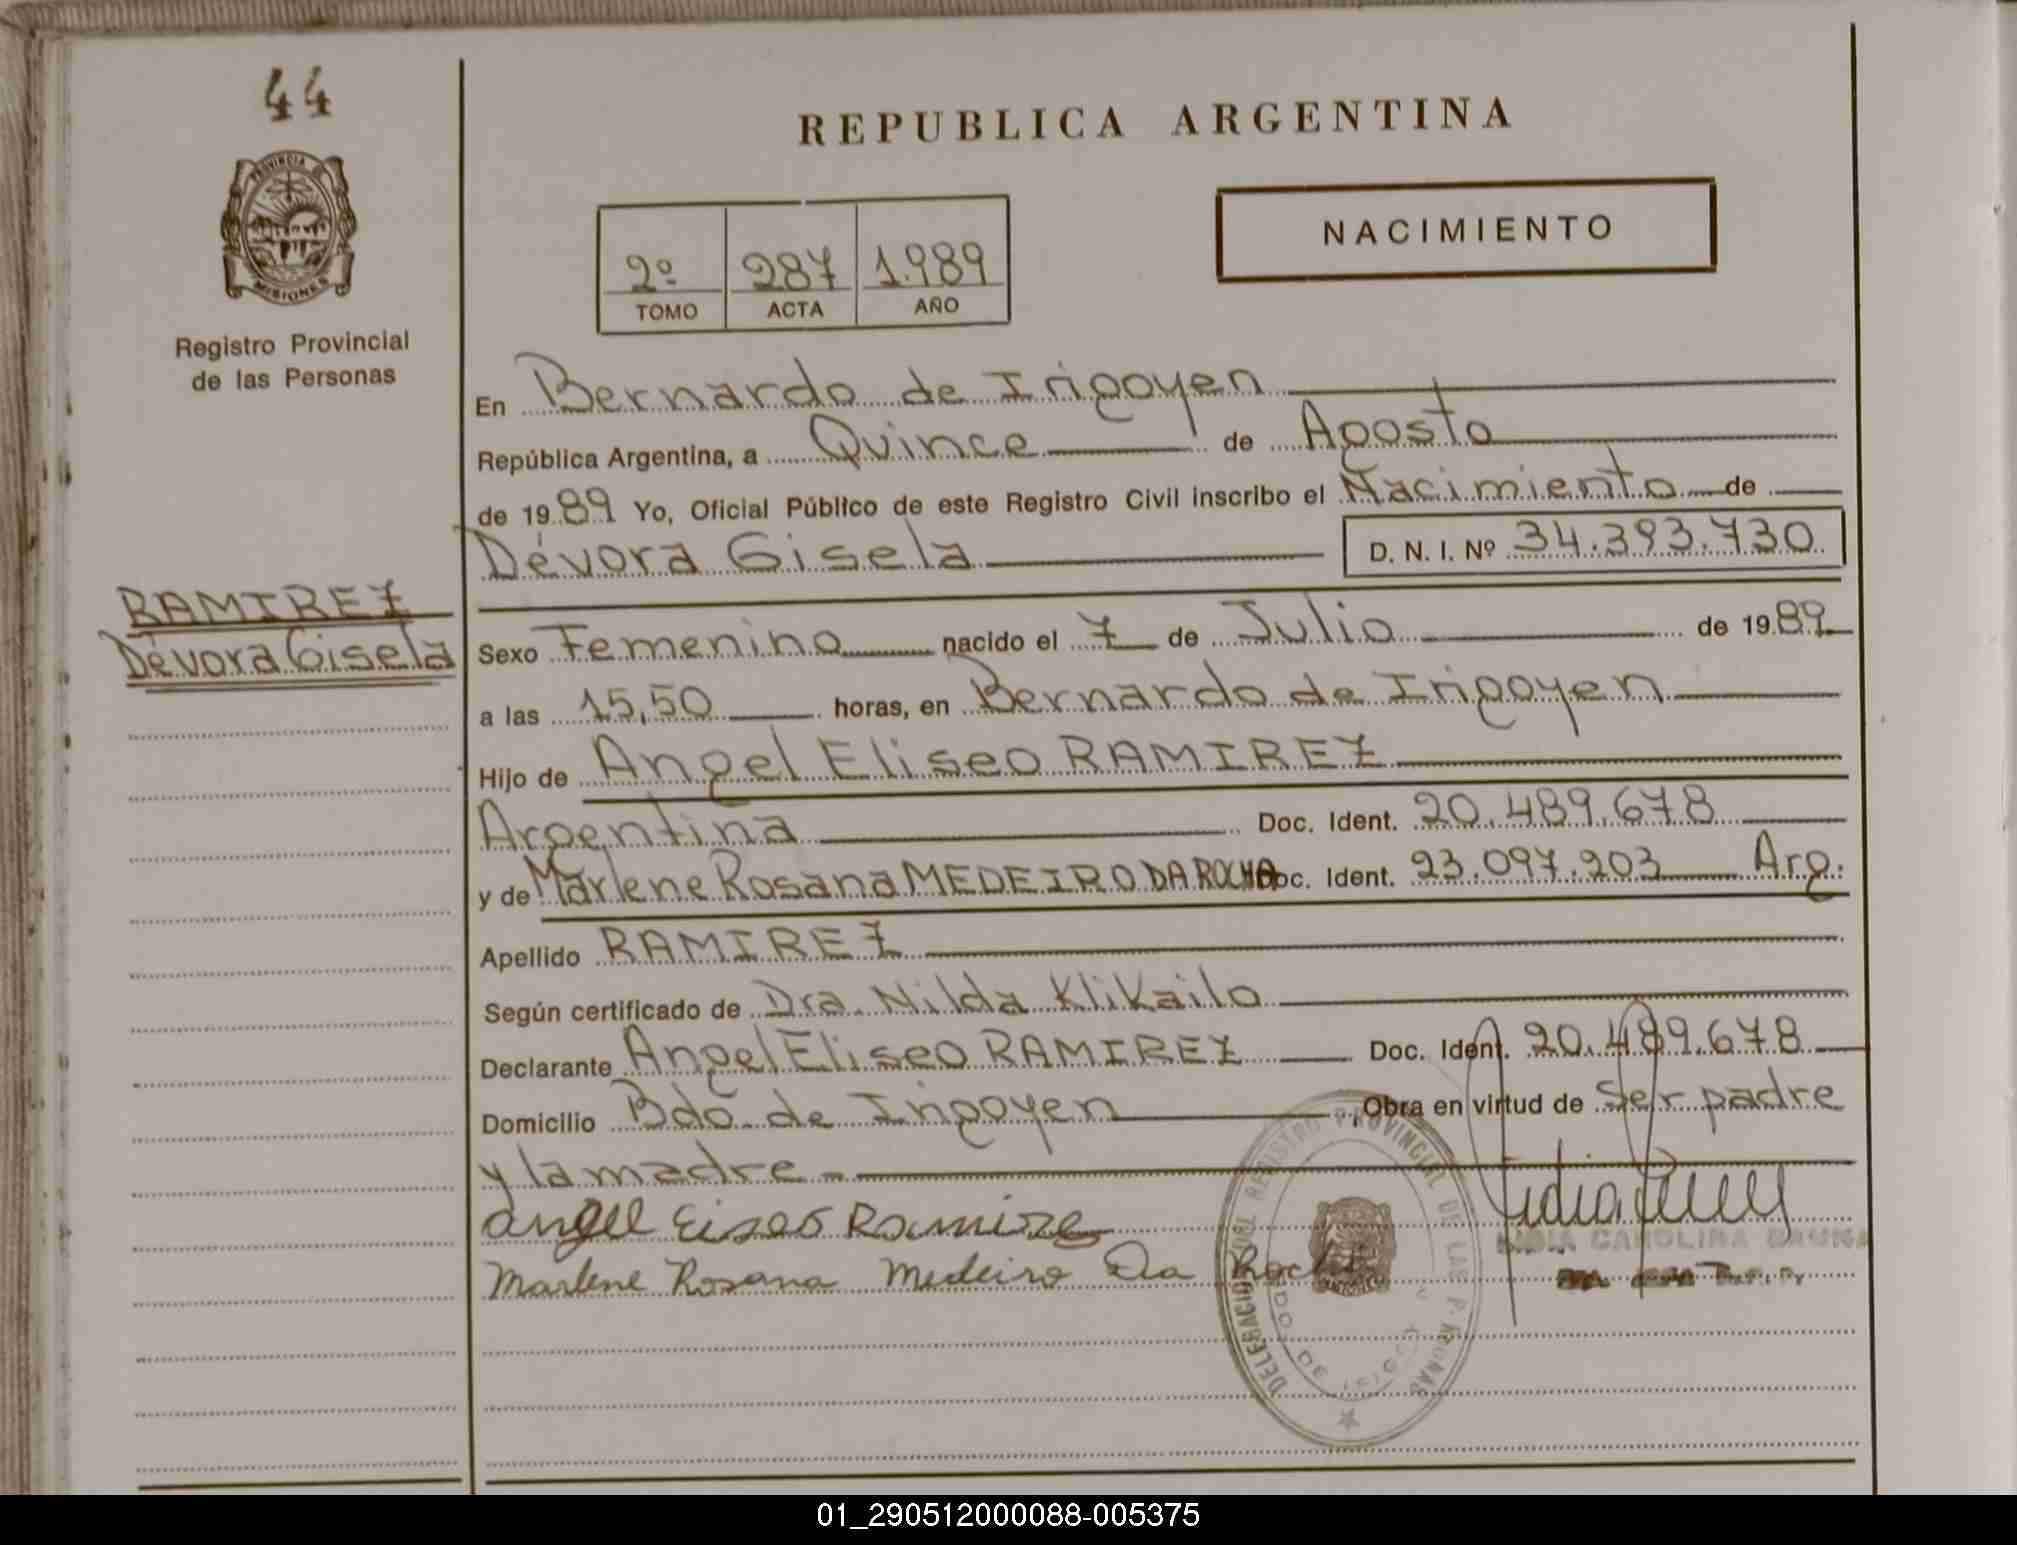 44
PROVINCIA
MISIONES
Registro Provincial
de las Personas
RAMIREZ
Dévora Gisela
REPUBLICA ARGENTINA
2º 287 1.989
TOMO ACTA AÑO
NACIMIENTO
En Bernardo de Irigoyen
República Argentina, a Quince de Agosto
de 1989 Yo, Oficial Público de este Registro Civil inscribo el Nacimiento de
Dévora Gisela D. N. I. Nº 34.393.730
Sexo Femenino nacido el 7 de Julio de 1989
a las 15,50 horas, en Bernardo de Irigoyen
Hijo de Angel Eliseo RAMIREZ
Argentina Doc. Ident. 20.489.678
y de Marlene Rosana MEDEIRO DA ROCHA Doc. Ident. 23.097.203 Arg.
Apellido RAMIREZ
Según certificado de Dra. Nilda Klikailo
Declarante Angel Eliseo RAMIREZ Doc. Ident. 20.489.678
Domicilio Bdo. de Irigoyen Obra en virtud de Ser padre
y la madre
angel Eiseo Ramirez
Marlene Rosana Medeiro Da Rocha
DELEGACION DEL REGISTRO PROVINCIAL DE LAS PERSONAS
LIDIA CAROLINA
01_290512000088-005375